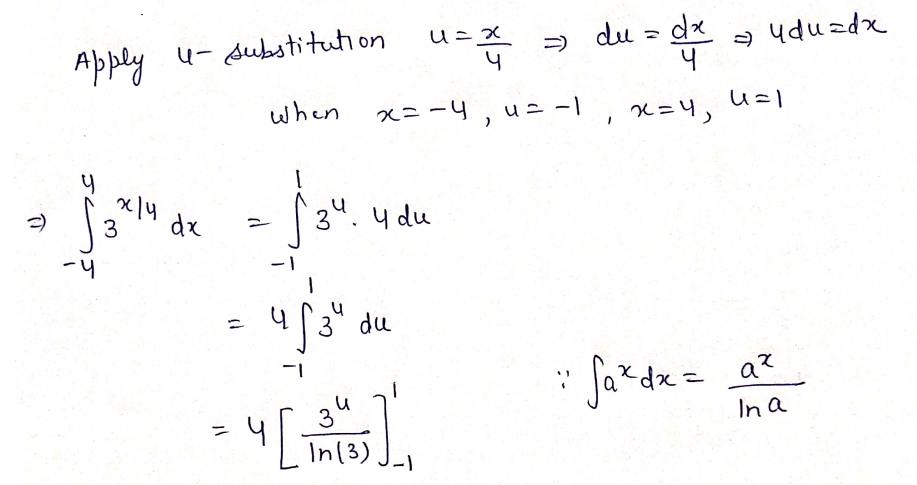 Apply u-substitution u = x/4 ⇒ du = dx/4 ⇒ 4du = dx
when x = -4, u = -1, x = 4, u = 1
⇒ ∫_{-4}^{4} 3^{x/4} dx = ∫_{-1}^{1} 3^u . 4 du
= 4 ∫_{-1}^{1} 3^u du
= 4 [ 3^u / ln(3) ]_{-1}^{1} ∵ ∫ a^x dx = a^x / ln a